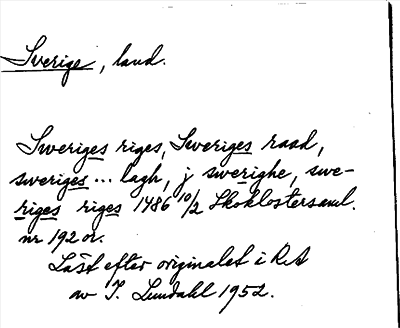 Sverige, land.
Sweriges riges, Sweriges raad,
sweriges ... lagh, j swerighe, swe-
riges riges 1486 10/2 Skoklostersaml.
nr 192 or.
Läst efter originalet i RA
av I. Lundahl 1952.